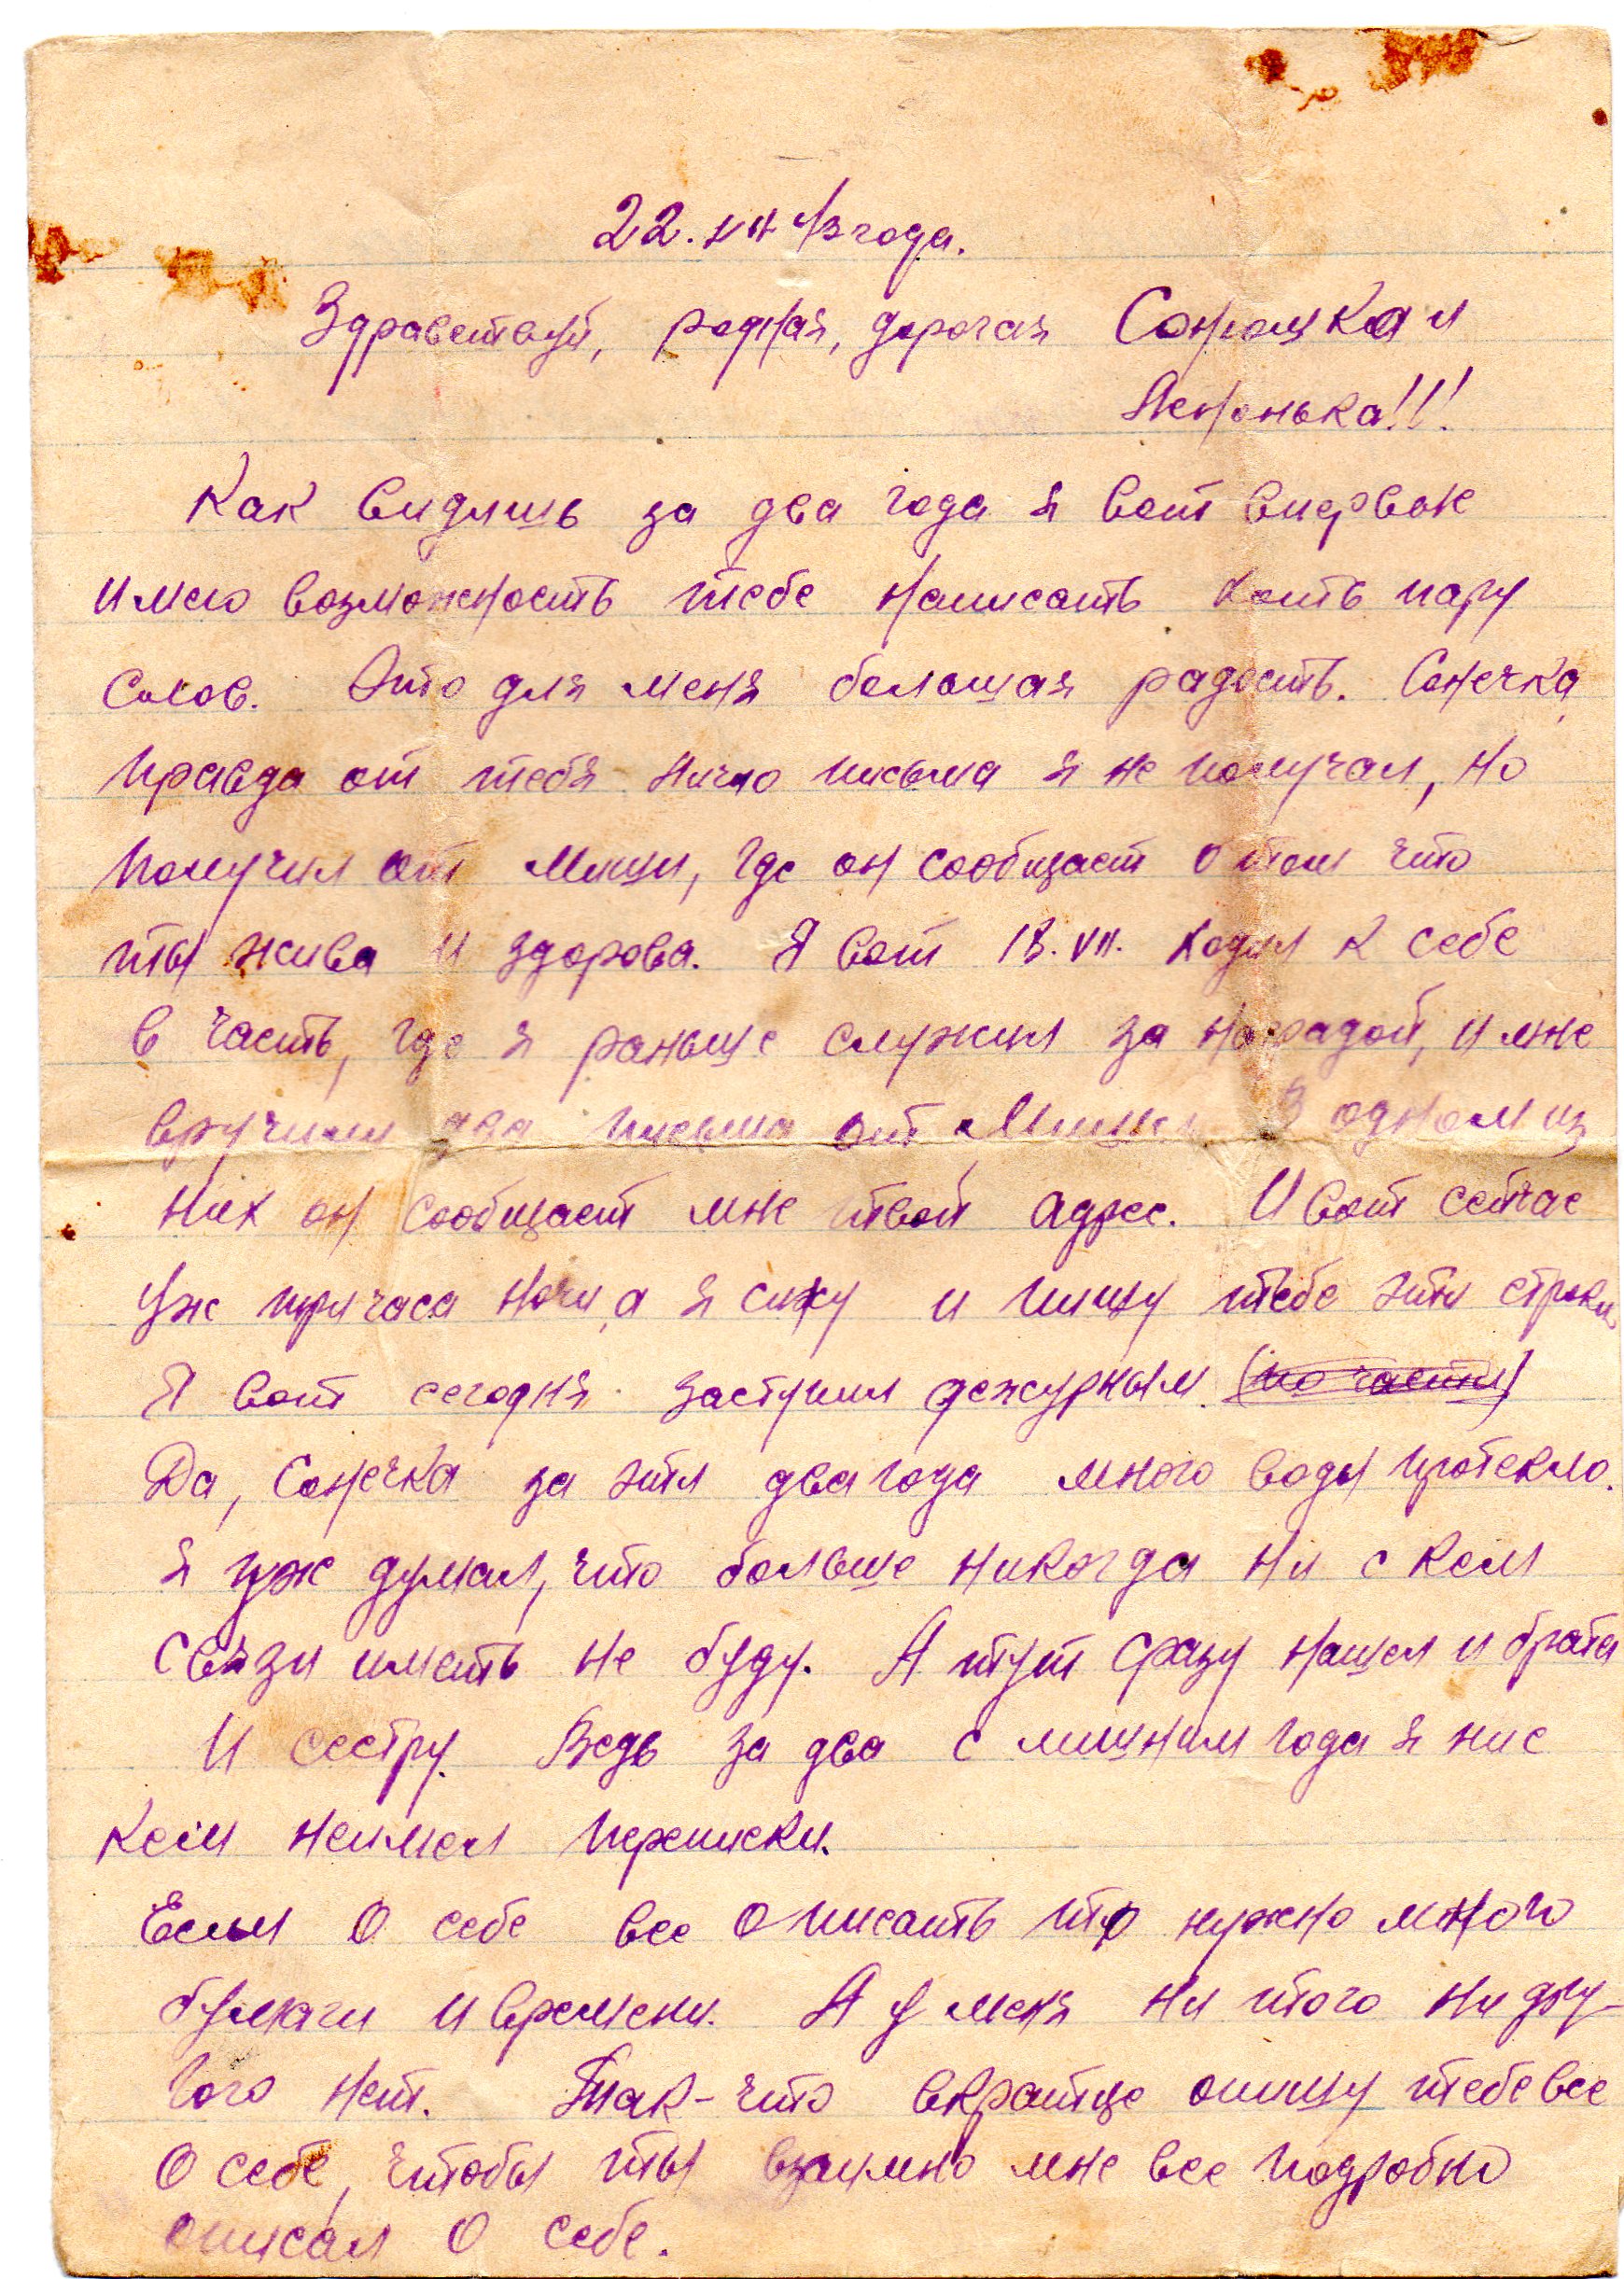 22. VII 43 года.
Здравствуй, родная, дорогая Сонюшка и
Яснонька!!!
Как видишь за два года я вот впервые
имею возможность тебе написать хоть пару
слов. Это для меня большая радость. Сонечка,
правда от тебя лично письма я не получал, но
получил от Миши, где он сообщает о том что
ты жива и здорова. Я вот 18. VII. ходил к себе
в часть, где я раньше служил за наградой, и мне
вручили два письма от Миши. В одном из
них он сообщает мне твой адрес. И вот сейчас
уж три часа ночи, а я сижу и пишу тебе эти строки
Я вот сегодня заступил дежурным. (по части)
Да, Сонечка за эти два года много воды протекло.
Я уж думал, что больше никогда ни с кем
связи иметь не буду. А тут сразу нашел и брата
и сестру. Ведь за два с лишним года я ни с
кем неимел переписки.
Если о себе все описать то нужно много
бумаги и времени. А у меня ни того ни дру-
гого нет. Так-что вкратце опишу тебе все
о себе, чтобы ты взаимно мне все подробно
описал о себе.